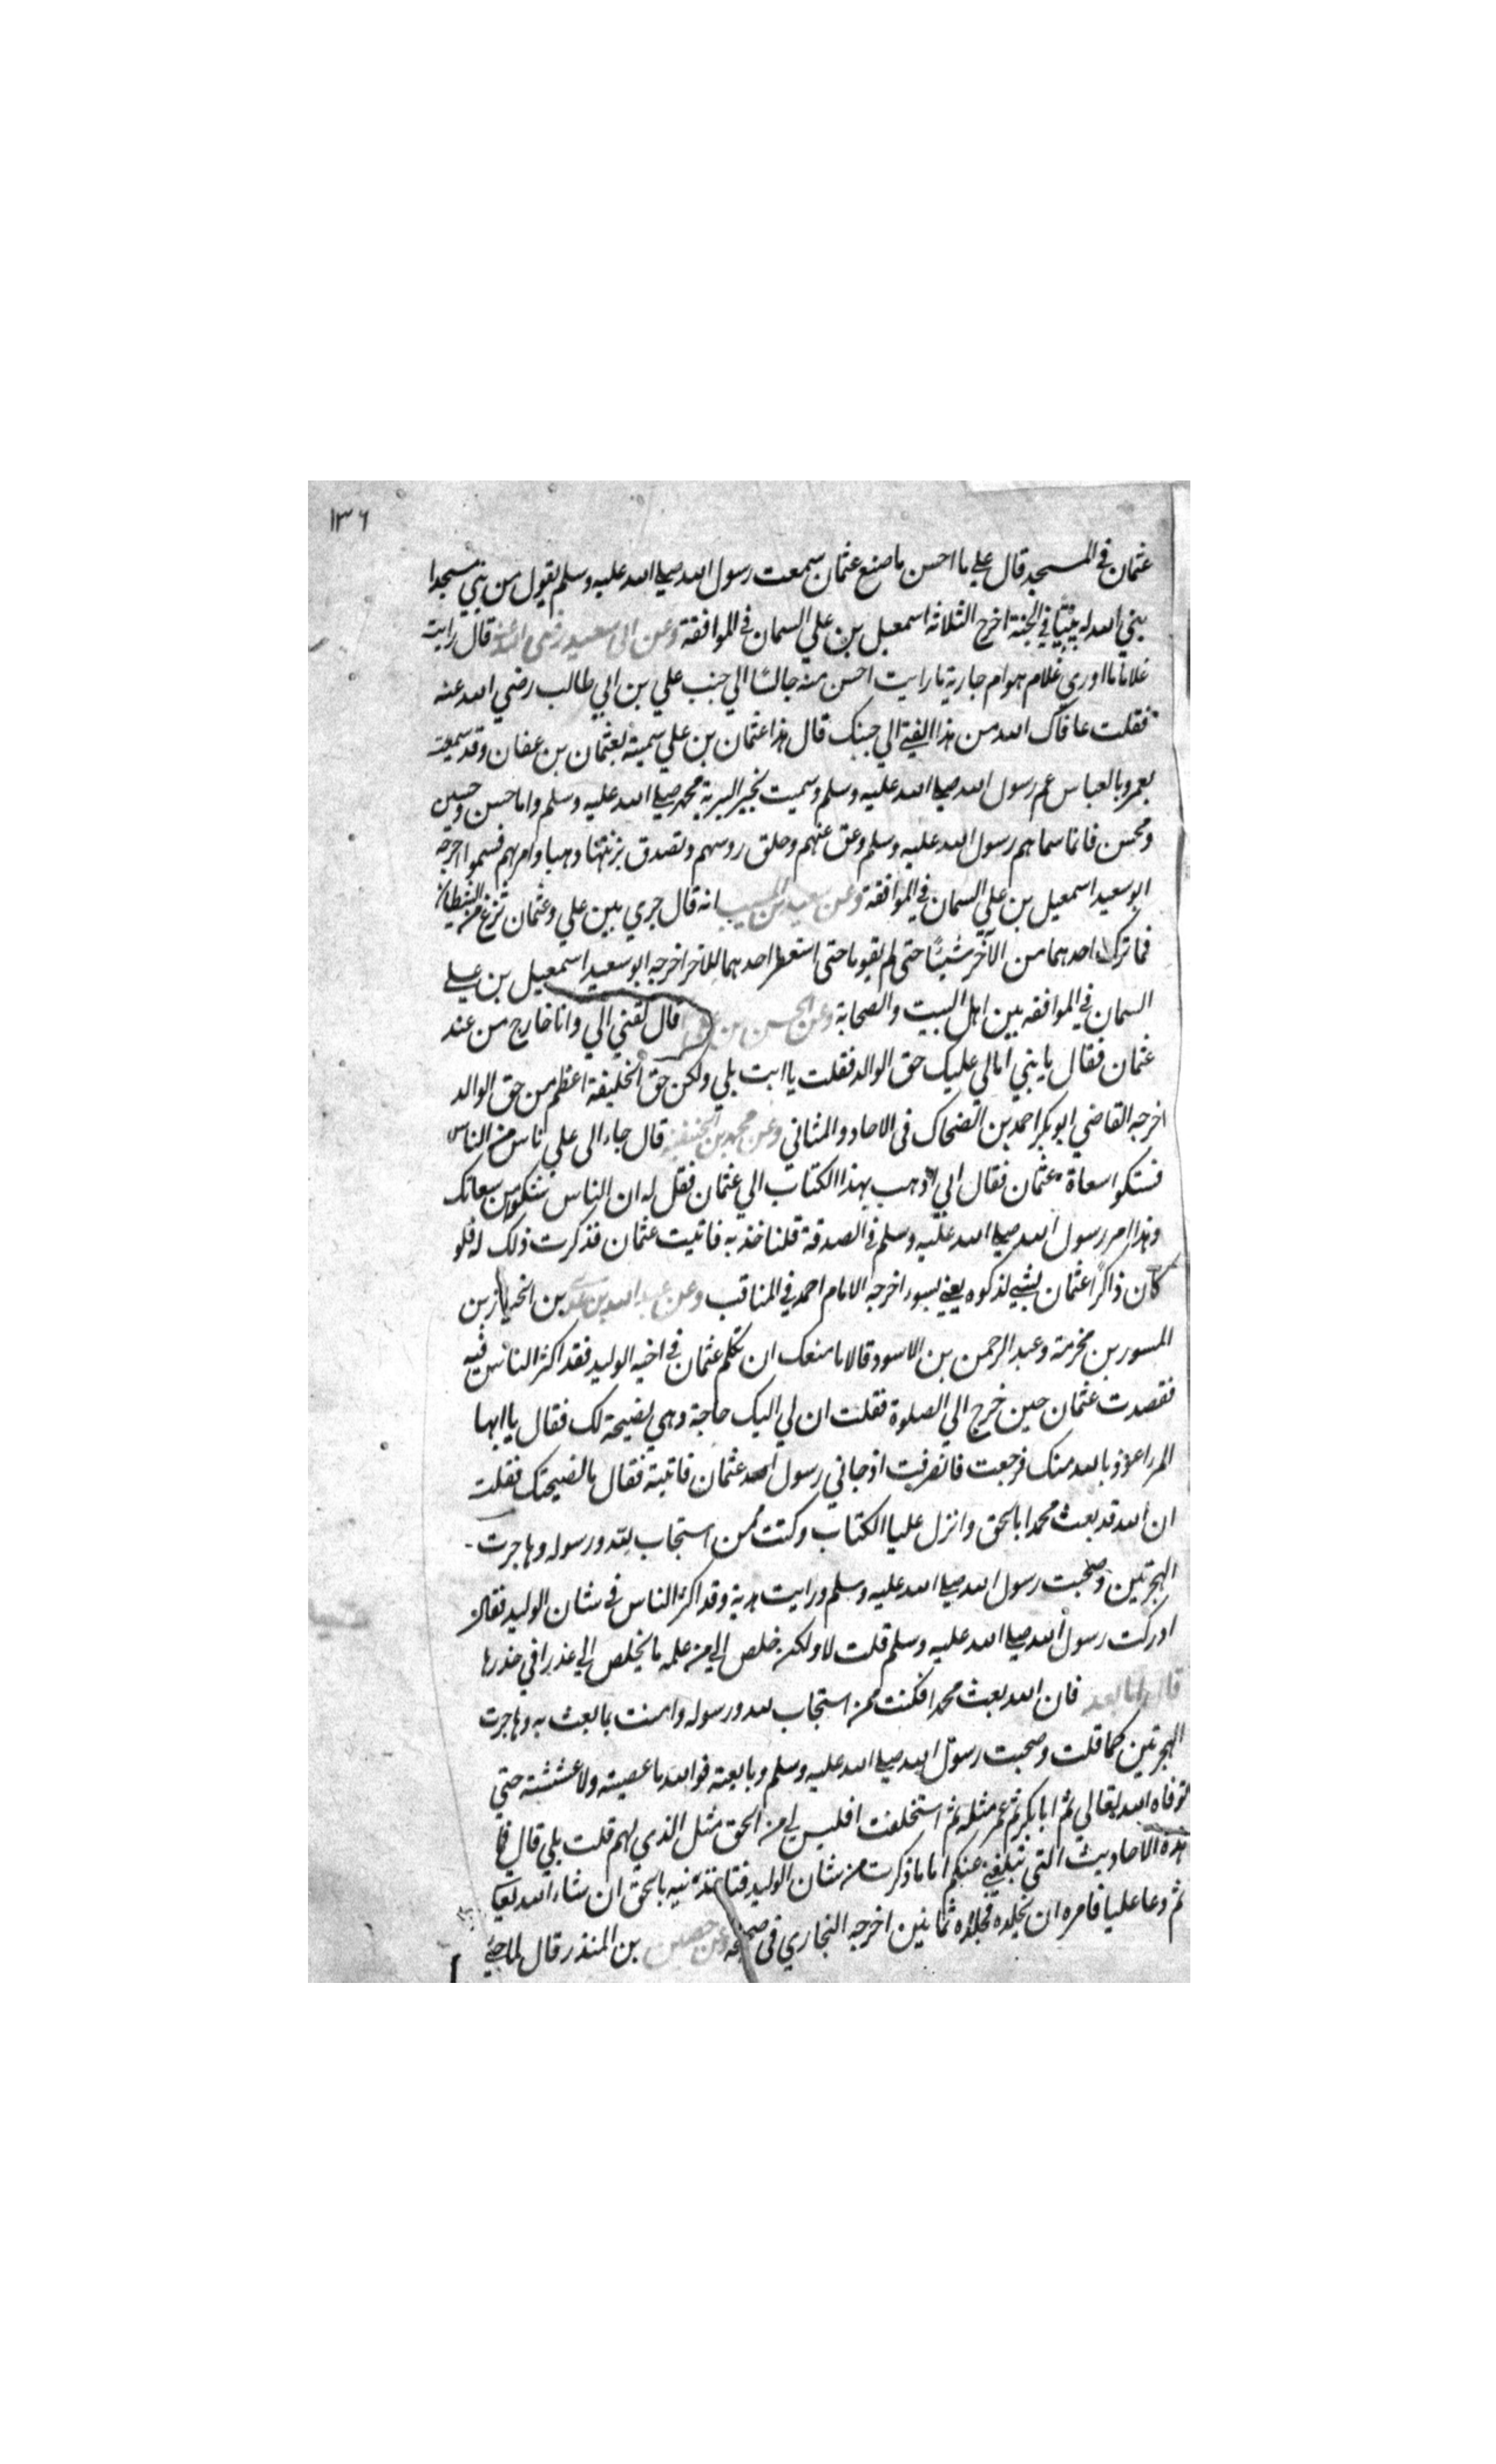 ١٣٦
عثمان في المسجد قال علي ما احسن ما صنع عثمان سمعت رسول الله صلى الله عليه وسلم يقول من بني مسجدا
بني الله له بيتا في الجنة اخرج الثلاثة اسمعيل بن علي السمان في الموافقة وعن ابي سعيد رضي الله عنه قال رايت
غلاما ما ادري غلام هو ام جارية ما رايت احسن منه جالسا الي جنب علي بن ابي طالب رضي الله عنه
فقلت عافاك الله من هذا الفتي الي جنبك قال هذا عثمان بن علي سميته بعثمان بن عفان وقد سميت
بعمر وبالعباس عم رسول الله صلى الله عليه وسلم وسميت بخير البرية محمد صلى الله عليه وسلم واما حسن وحسين
ومحسن فانما سماهم رسول الله عليه وسلم وعق عنهم وحلق روسهم وتصدق بزنتها وهبا وامرهم فسموا اخرجه
ابو سعيد اسمعيل بن علي السمان في الموافقة وعن سعيد بن المسيب انه قال جري بين علي وعثمان نزغ من الشيطان
فما ترك احدهما من الآخر شيئا حتى لم يقوما حتى استغفر احدهما للآخر اخرجه ابو سعيد اسمعيل بن علي
السمان في الموافقه بين اهل البيت والصحابة وعن الحسن بن علي قال لقني الي وانا خارج من عند
عثمان فقال يا بني امالي عليك حق الوالد فقلت يا ابت بلي ولكن حق الخليفة اعظم من حق الوالد
اخرجه القاضي ابو بكر احمد بن الضحاك في الاحاد والمثاني وعن محمد بن الحنفية قال جاء الى علي ناس من الناس
فشكوا سعاة عثمان فقال ابي اذهب بهذا الكتاب الي عثمان فقل له ان الناس شكوا من سعاتك
وهذا امر رسول الله صلى الله عليه وسلم في الصدقة قلنا خذ به فاتيت عثمان فذكرت ذلك له فلو
كان ذاكرا عثمان بشي لذكره يعني بسوء اخرجه الامام احمد في المناقب وعن عبد الله بن عدي بن الخيار بن
المسور بن مخرمة وعبد الرحمن بن الاسود قالا ما منعك ان تكلم عثمان في اخيه الوليد فقد اكثر الناس فيه
فقصدت عثمان حين خرج الي الصلوة فقلت ان لي اليك حاجة وهي نصيحة لك فقال يا ايها
المرء اعوذ بالله منك فرجعت فانصرفت اذ جاني رسول عثمان فاتيته فقال ما نصيحتك فقلت
ان الله قد بعث محمدا بالحق وانزل عليه الكتاب وكنت ممن استجاب لله ورسوله وهاجرت
الهجرتين وصحبت رسول الله صلى الله عليه وسلم ورايت هديه وقد اكثر الناس في شان الوليد فقال
ادركت رسول الله صلى الله عليه وسلم قلت لا ولكن خلص الي من علمه ما يخلص الي عذرا في خدرها
قال اما بعد فان الله بعث محمدا فكنت ممن استجاب لله ورسوله وامنت بما بعث به وهاجرت
الهجرتين كما قلت وصحبت رسول الله صلى الله عليه وسلم وبايعته فوالله ما عصيته ولا غششته حتي
توفاه الله تعالي ثم ابا بكر ثم عمر مثله ثم استخلفت افليس لي من الحق مثل الذي لهم قلت بلي قال فما
هذه الاحاديث التي تبلغني عنكم اما ما ذكرت من شان الوليد فسناخذ فيه بالحق ان شاء الله تعالي
ثم دعا عليا فامره ان يجلده فجلده ثمانين اخرجه البخاري في صحيحه وعن حصين بن المنذر قال لما جئ